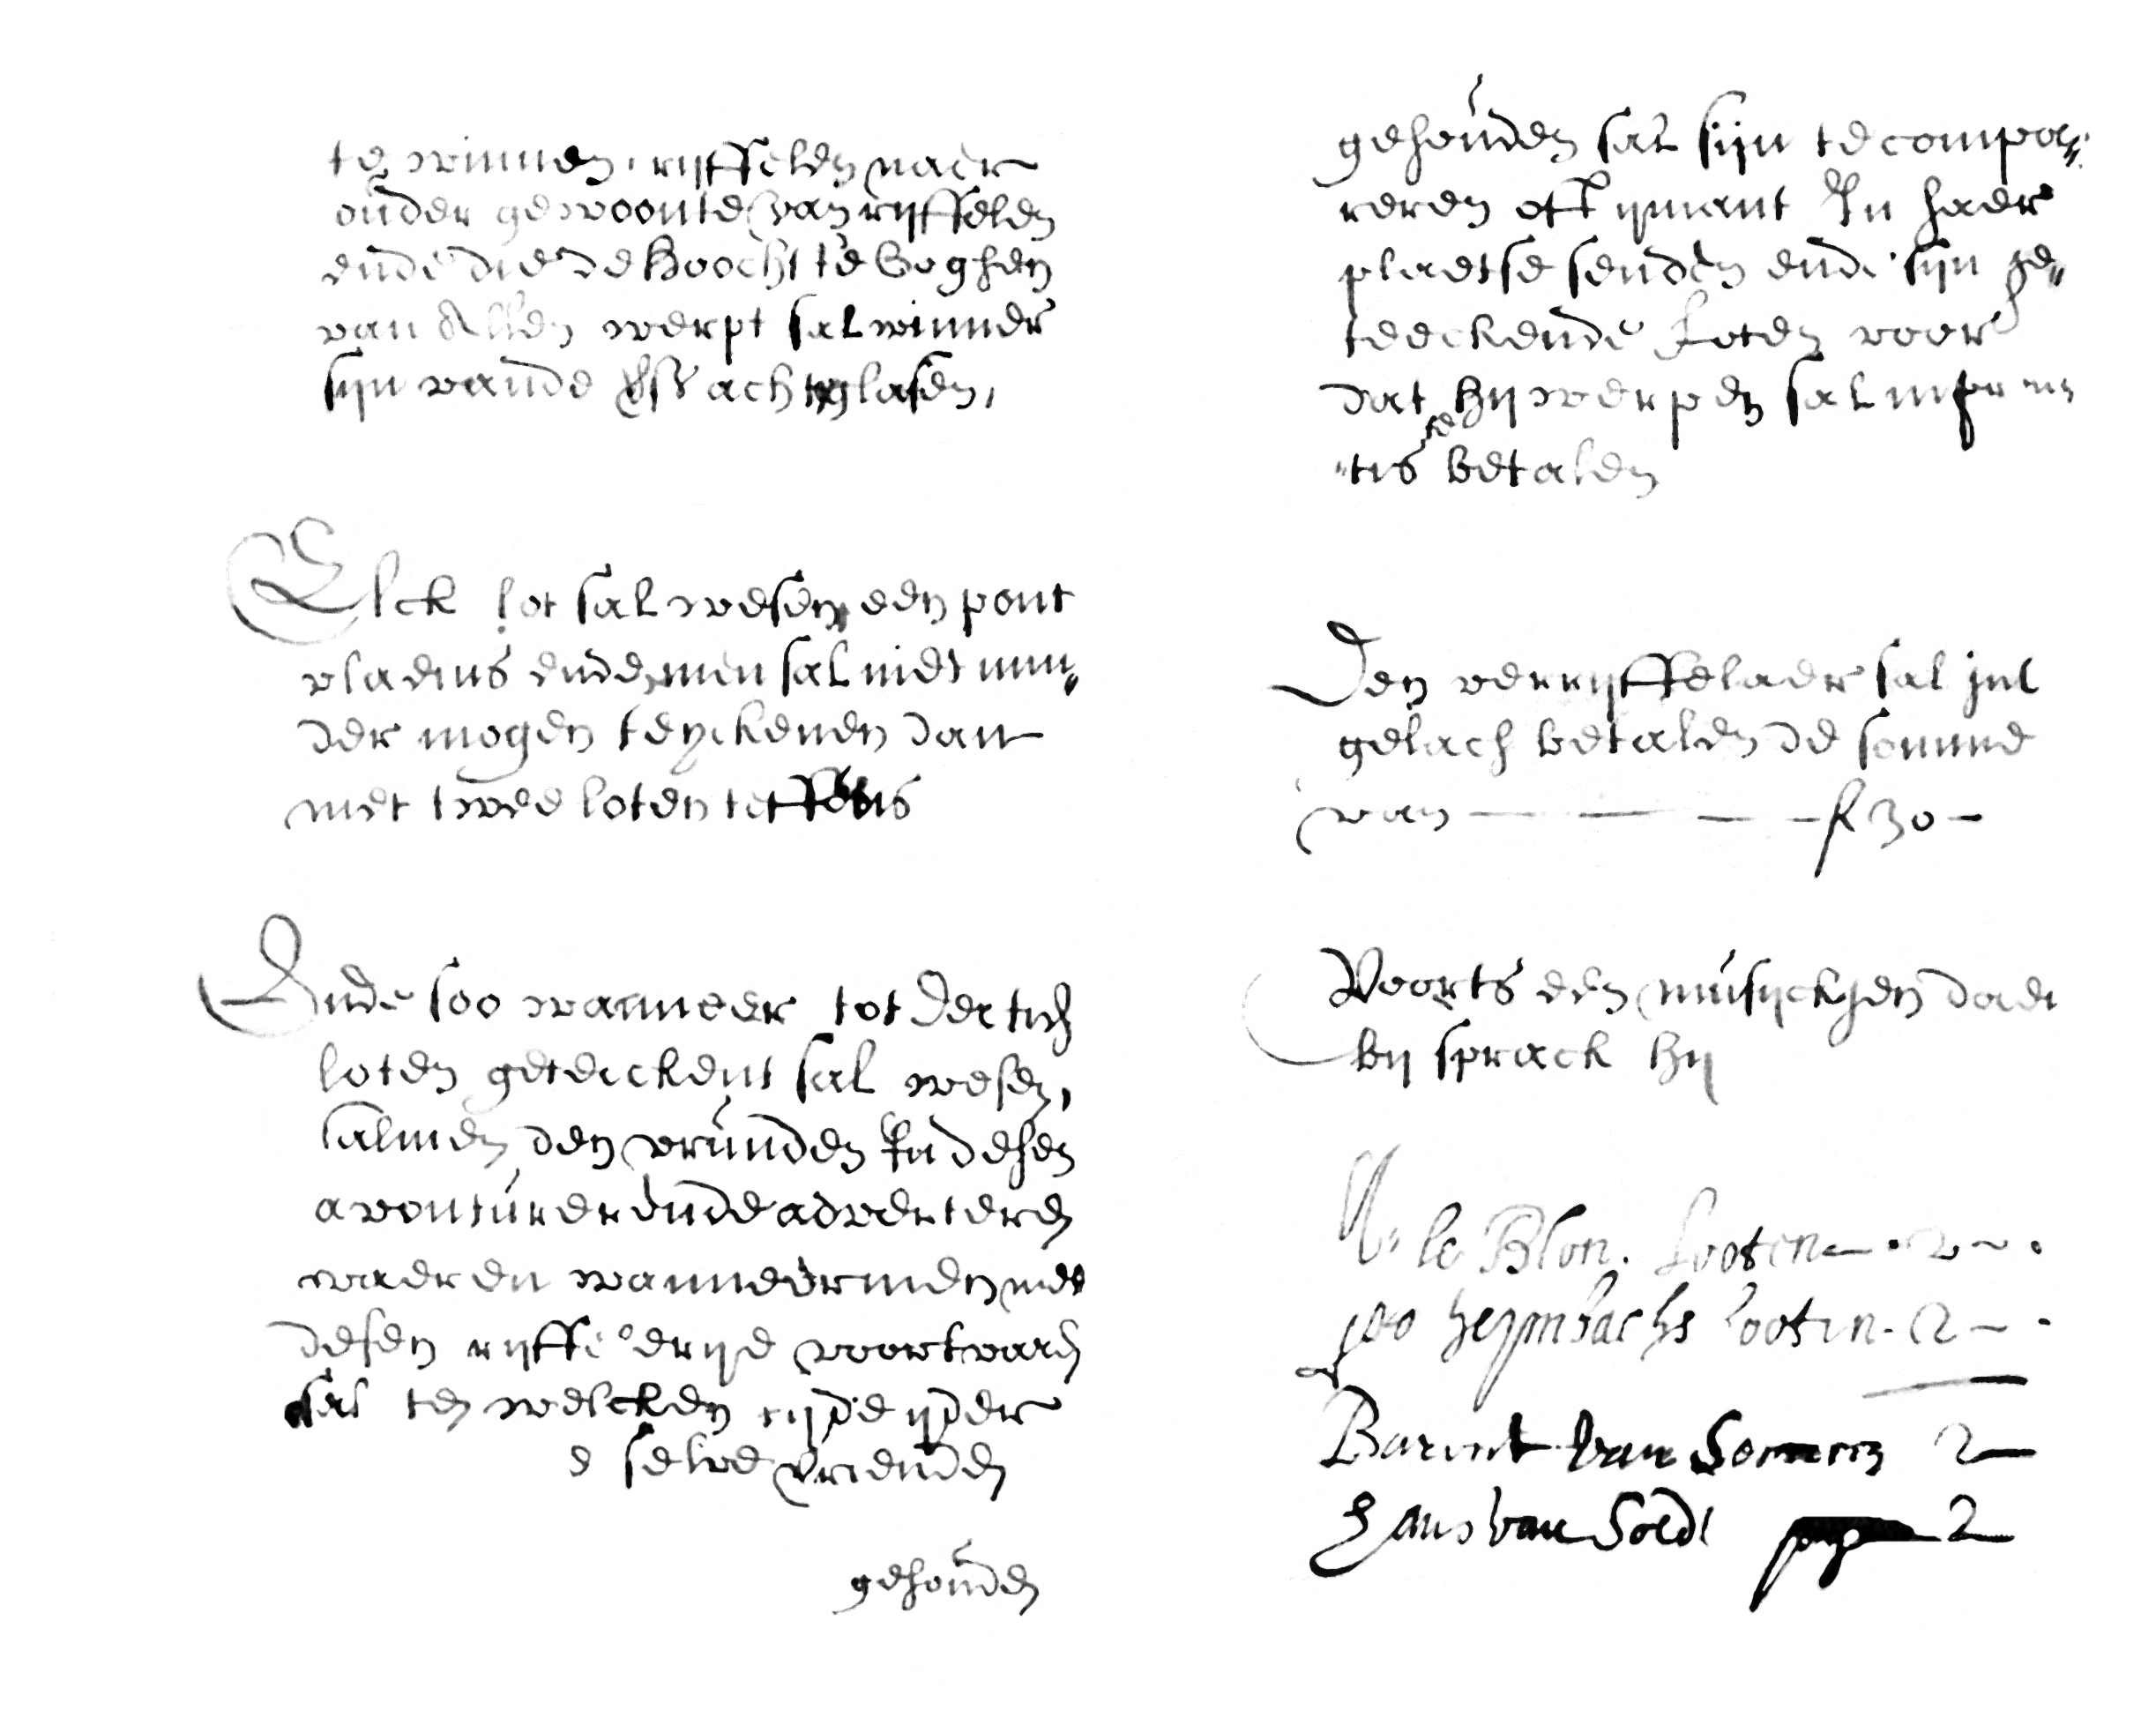 te winnen, rijffelen naer
ouder gewoonte van rijffelen
ende die de hoochste ooghen
van allen werpt sal winner
sijn vande ses achtglasen,
Elck lot sal wesen een pont
vlaems ende men sal niet min„
der mogen teyckenen dan
met twee loten
Ende soo wanneer tot dertich
loten geteeckent sal wesen,
salmen den vrunden In desen
avonturerende adverteren
waer en wanneermen met
desen rijffelerije voortvaren
sal ten welcken tijde ijder
e selve vrienden
gehouden
gehouden sal sijn te compa„
reren oft ijmant In haer
plaetse senden ende sijn ge„
teeckende loten voor
dat hij werpen sal mpromp
„tis te betalen
Den verrijffelaer sal int
gelach betalen de somme
van — — — — f 30 —
Voorts een musijckjen daer
bij sprack hij
le Blon. Looten — 2 —
heijmbachs looten. 2 —
Barent van Someren 2 —
Hans van Soldt 2 —